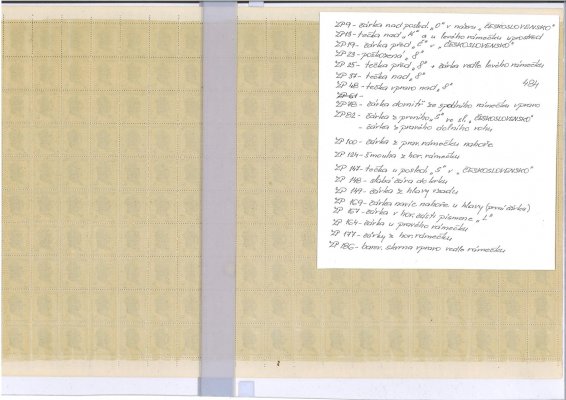 ZP 9 - čárka nad posled. „O" v názvu „ČESKOSLOVENSKO"
ZP 13 - tečka nad „K" a u levého rámečku uprostřed
ZP 19 - čárka před „Č" v „ČESKOSLOVENSKO"
ZP 23 - poškozená „8"
ZP 25 - tečka před „8" + čárka vedle levého rámečku
ZP 37 - tečka nad „8"
ZP 48 - tečka vpravo nad „8"
484
ZP 61 -
ZP 78 - čárka dovnitř ze spodního rámečku vpravo
ZP 82 - čárka z prvního „S" ve sl. „ČESKOSLOVENSKO"
- čárka z pravého dolního rohu
ZP 100 - čárka z prav. rámečku nahoře
ZP 124 - šmouha z hor. rámečku
ZP 147 - tečka u posled. „S" v „ČESKOSLOVENSKO"
ZP 148 - slabá čára do krku
ZP 149 - čárka z hlavy vzadu
ZP 159 - čárka navíc nahoře u hlavy (první čárka)
ZP 157 - čárka v hor. části písmene „L"
ZP 164 - čárka u pravého rámečku
ZP 177 - čárky z hor. rámečku
ZP 186 - barev. skvrna vpravo vedle rámečku